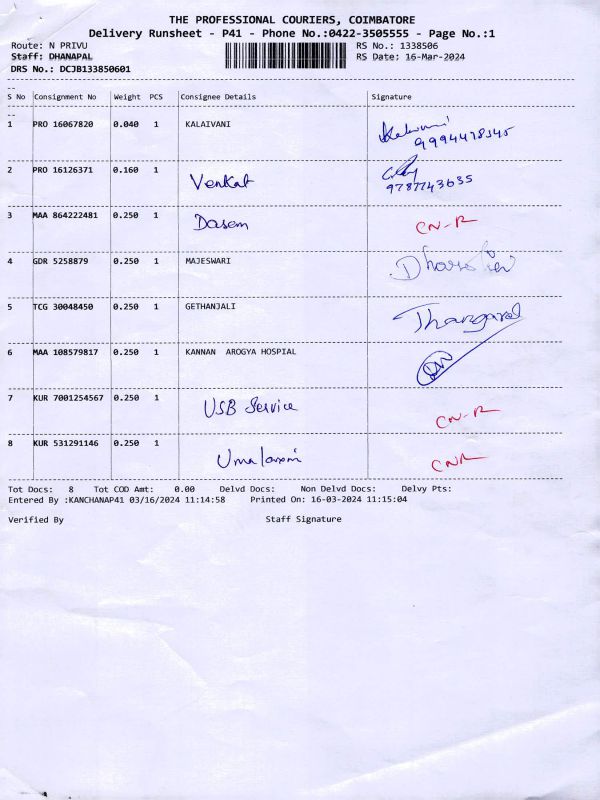 THE PROFESSIONAL COURIERS, COIMBATORE
Delivery Runsheet - P41 - Phone No.:0422-3505555 - Page No.:1
Route: N PRIVU RS No.: 1338506
Staff: DHANAPAL RS Date: 16-Mar-2024
DRS No.: DCJB133850601
S No Consignment No Weight PCS Consignee Details Signature
1 PRO 16067820 0.040 1 KALAIVANI
2 PRO 16126371 0.160 1 Venkat
9787743635
3 MAA 864222481 0.250 1 Dasem CN-R
4 GDR 5258879 0.250 1 MAJESWARI
5 TCG 30048450 0.250 1 GETHANJALI Thangavel
6 MAA 108579817 0.250 1 KANNAN AROGYA HOSPIAL
7 KUR 7001254567 0.250 1 USB Service CN-R
8 KUR 531291146 0.250 1 CNR
Tot Docs: 8 Tot COD Amt: 0.00 Delvd Docs: Non Delvd Docs: Delvy Pts:
Entered By :KANCHANAP41 03/16/2024 11:14:58 Printed On: 16-03-2024 11:15:04
Verified By Staff Signature